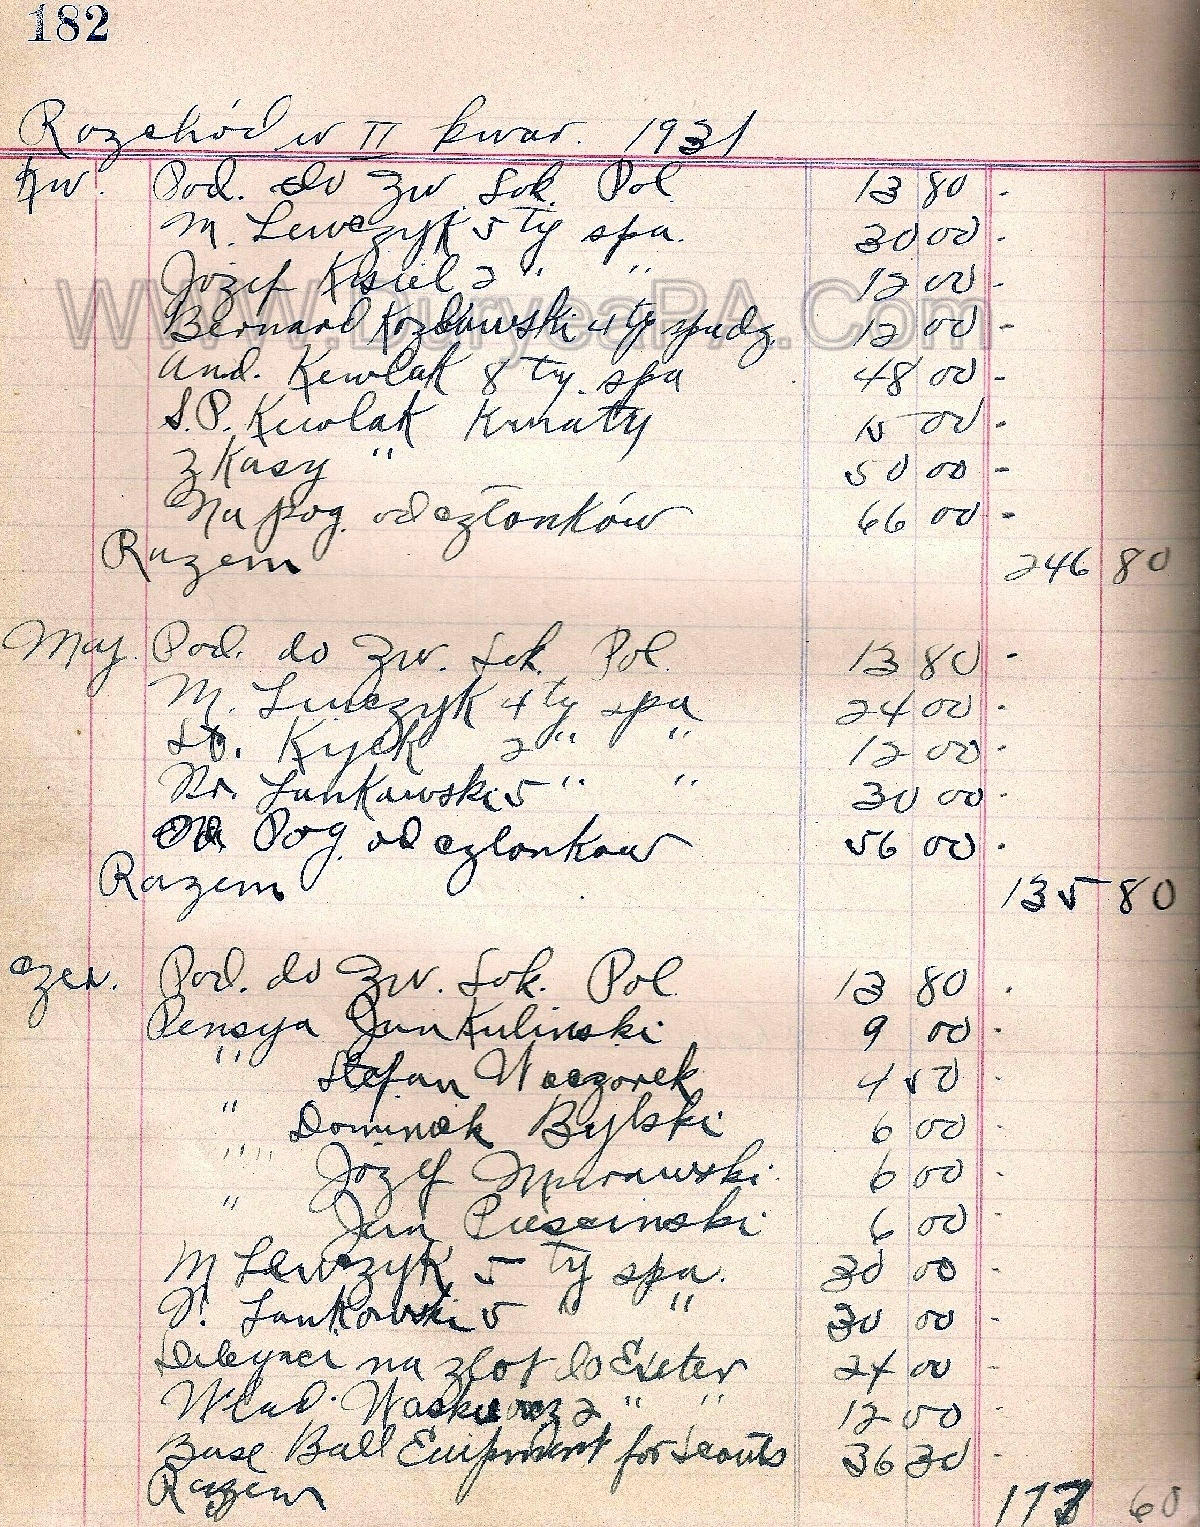 182
Rozchód w II kwar. 1931
Kw. Pod. do Zw. Sok. Pol. 13 80 -
M. Lewczyk 5 ty spa. 30 00 -
Józef Kisiel 2 " " 12 00 -
Bernard Kozlowski 4 ty spadz 12 00 -
And. Kewlak 8 ty. spa 48 00 -
S.P. Kewlak Kwiaty 15 00 -
z Kasy " 50 00 -
Na pog. od członków 66 00 -
Razem 246 80
Maj. Pod. do Zw. Sok. Pol. 13 80 -
M. Lewczyk 4 ty spa 24 00 -
St. Kyck 2 " " 12 00 -
Lankowski 5 " " 30 00 -
Na Pog. od czlonkow 56 00 -
Razem 135 80
Czer. Pod. do Zw. Sok. Pol. 13 80 .
Pensya Jan Kulinski 9 00 -
" Stefan Waczorek 4 50 -
" Dominik Bylski 6 00 -
" " Jozef Murawski 6 00 -
" Jan 6 00 -
M Lewczyk 5 ty spa. 30 00 -
Lankowski 5 " " 30 00 -
na zlot do Exeter 24 00 -
Wlad. 2 " " 12 00 -
Base Ball Euipment for Scouts 36 30 -
Razem 177 60
WWW.DuryeaPA.Com